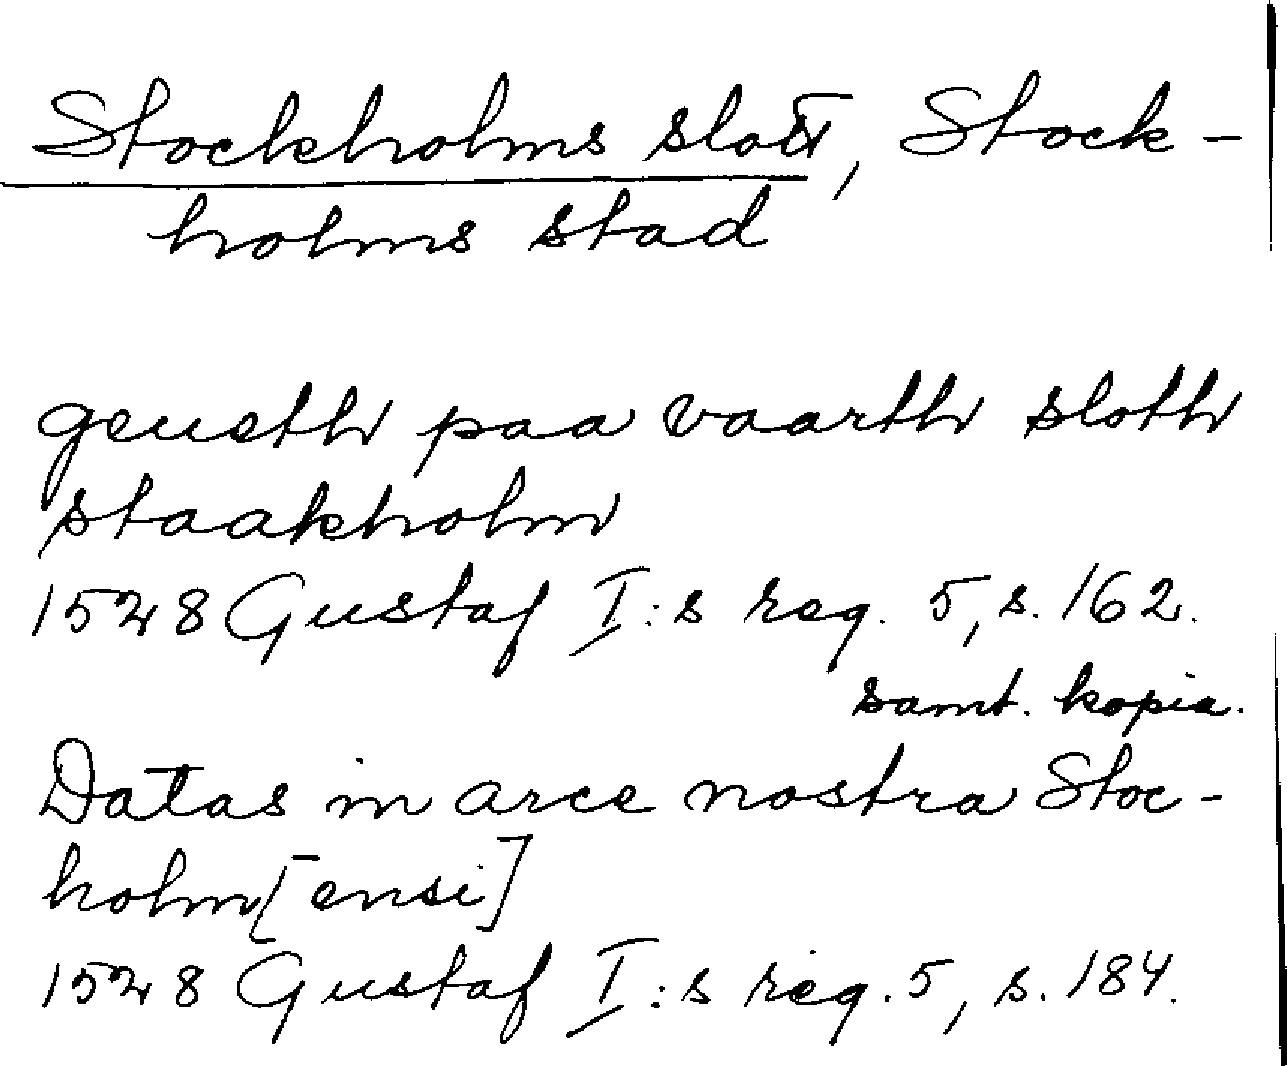 Stockholms slott, Stock-
holms stad
geueth paa vaarth sloth
staakholm
1528 Gustaf I:s reg. 5, s. 162.
samt. kopia.
Datas in arce nostra Stoc-
holm[ensi]
1528 Gustaf I:s reg. 5, s. 184.